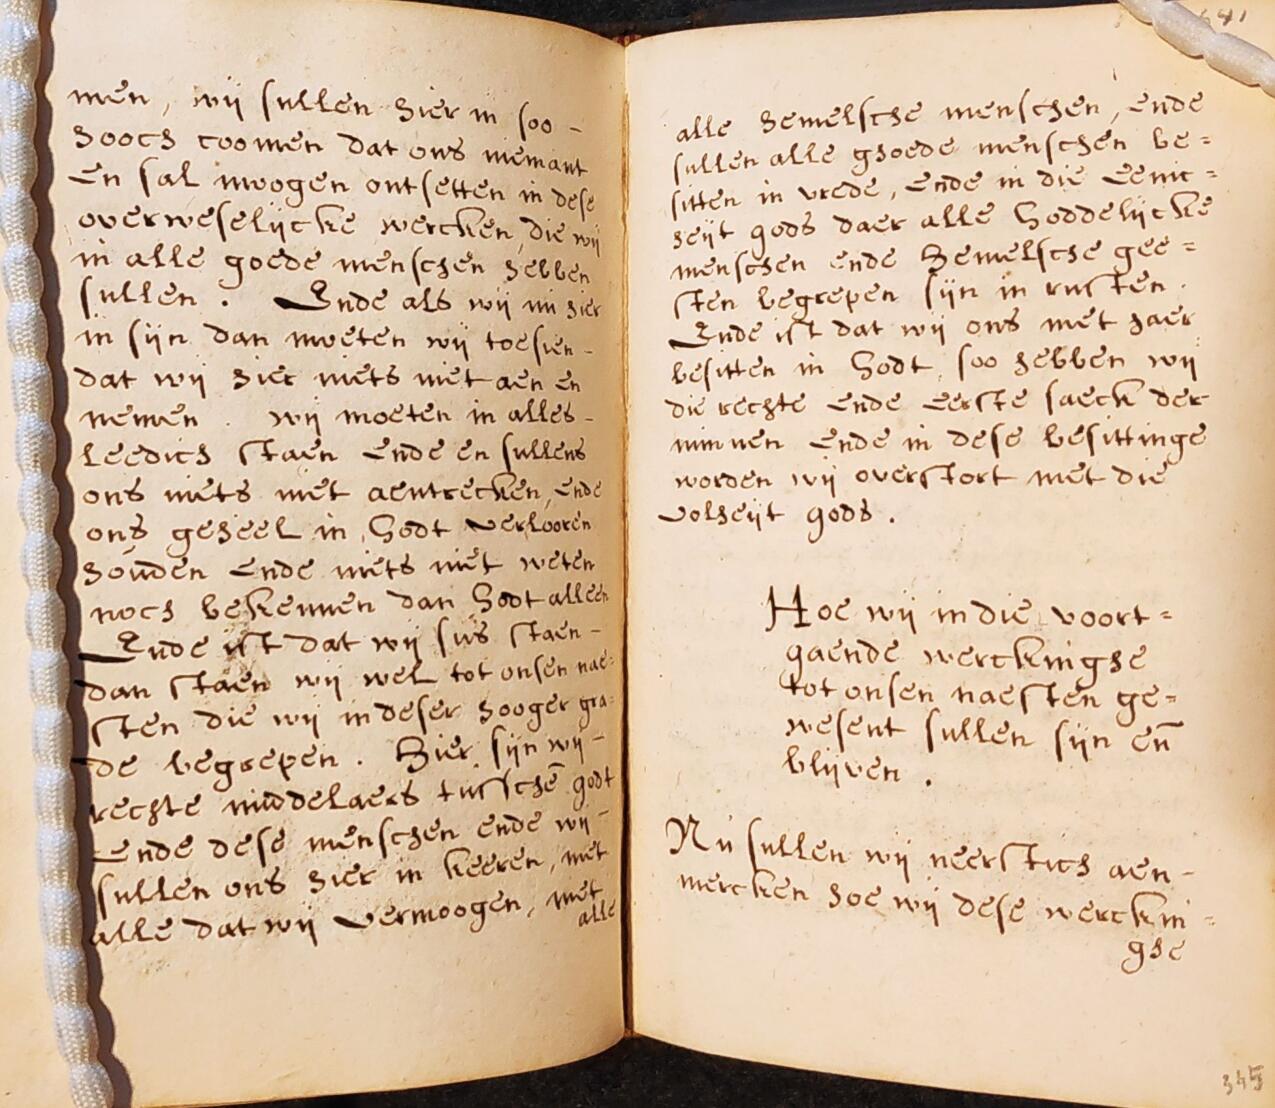 men, wij sullen hier in soo -
hooch coomen dat ons niemant
en sal moogen ontsetten in dese
overweselijcke wercken, die wij
in alle goede menschen hebben
sullen. Ende als wij nu hier
in sijn dan moeten wij toesien -
dat wij hier niets niet aen en
nemen. wij moeten in alles -
leedich staen ende en sullens
ons niets niet aentrecken, ende
ons geheel in Godt verlooren
houden ende niets niet weten
noch bekennen dan Godt alleen
Ende ist dat wij sus staen -
dan staen wij wel tot onsen nae=
sten die wij in deser hooger gra=
de begrepen. Hier sijn wij -
rechte middelaers tusschē godt
Ende dese menschen ende wij -
sullen ons hier in keeren, met
alle dat wij vermoogen, met
alle
alle hemelsche menschen, ende
sullen alle ghoede menschen be=
sitten in vrede, ende in die eenic=
heijt gods daer alle Goddelijcke
menschen ende Hemelsche gee=
sten begrepen sijn in rusten.
Ende ist dat wij ons met haer
besitten in Godt, soo hebben wij
die rechte ende eerste saeck der
minnen ende in dese besittinge
worden wij overstort met die
volheijt gods.
Hoe wij in die voort=
gaende werckinghe
tot onsen naesten ge=
wesent sullen sijn eñ
blijven.
Nu sullen wij neerstich aen -
mercken hoe wij dese werckin=
ghe
345